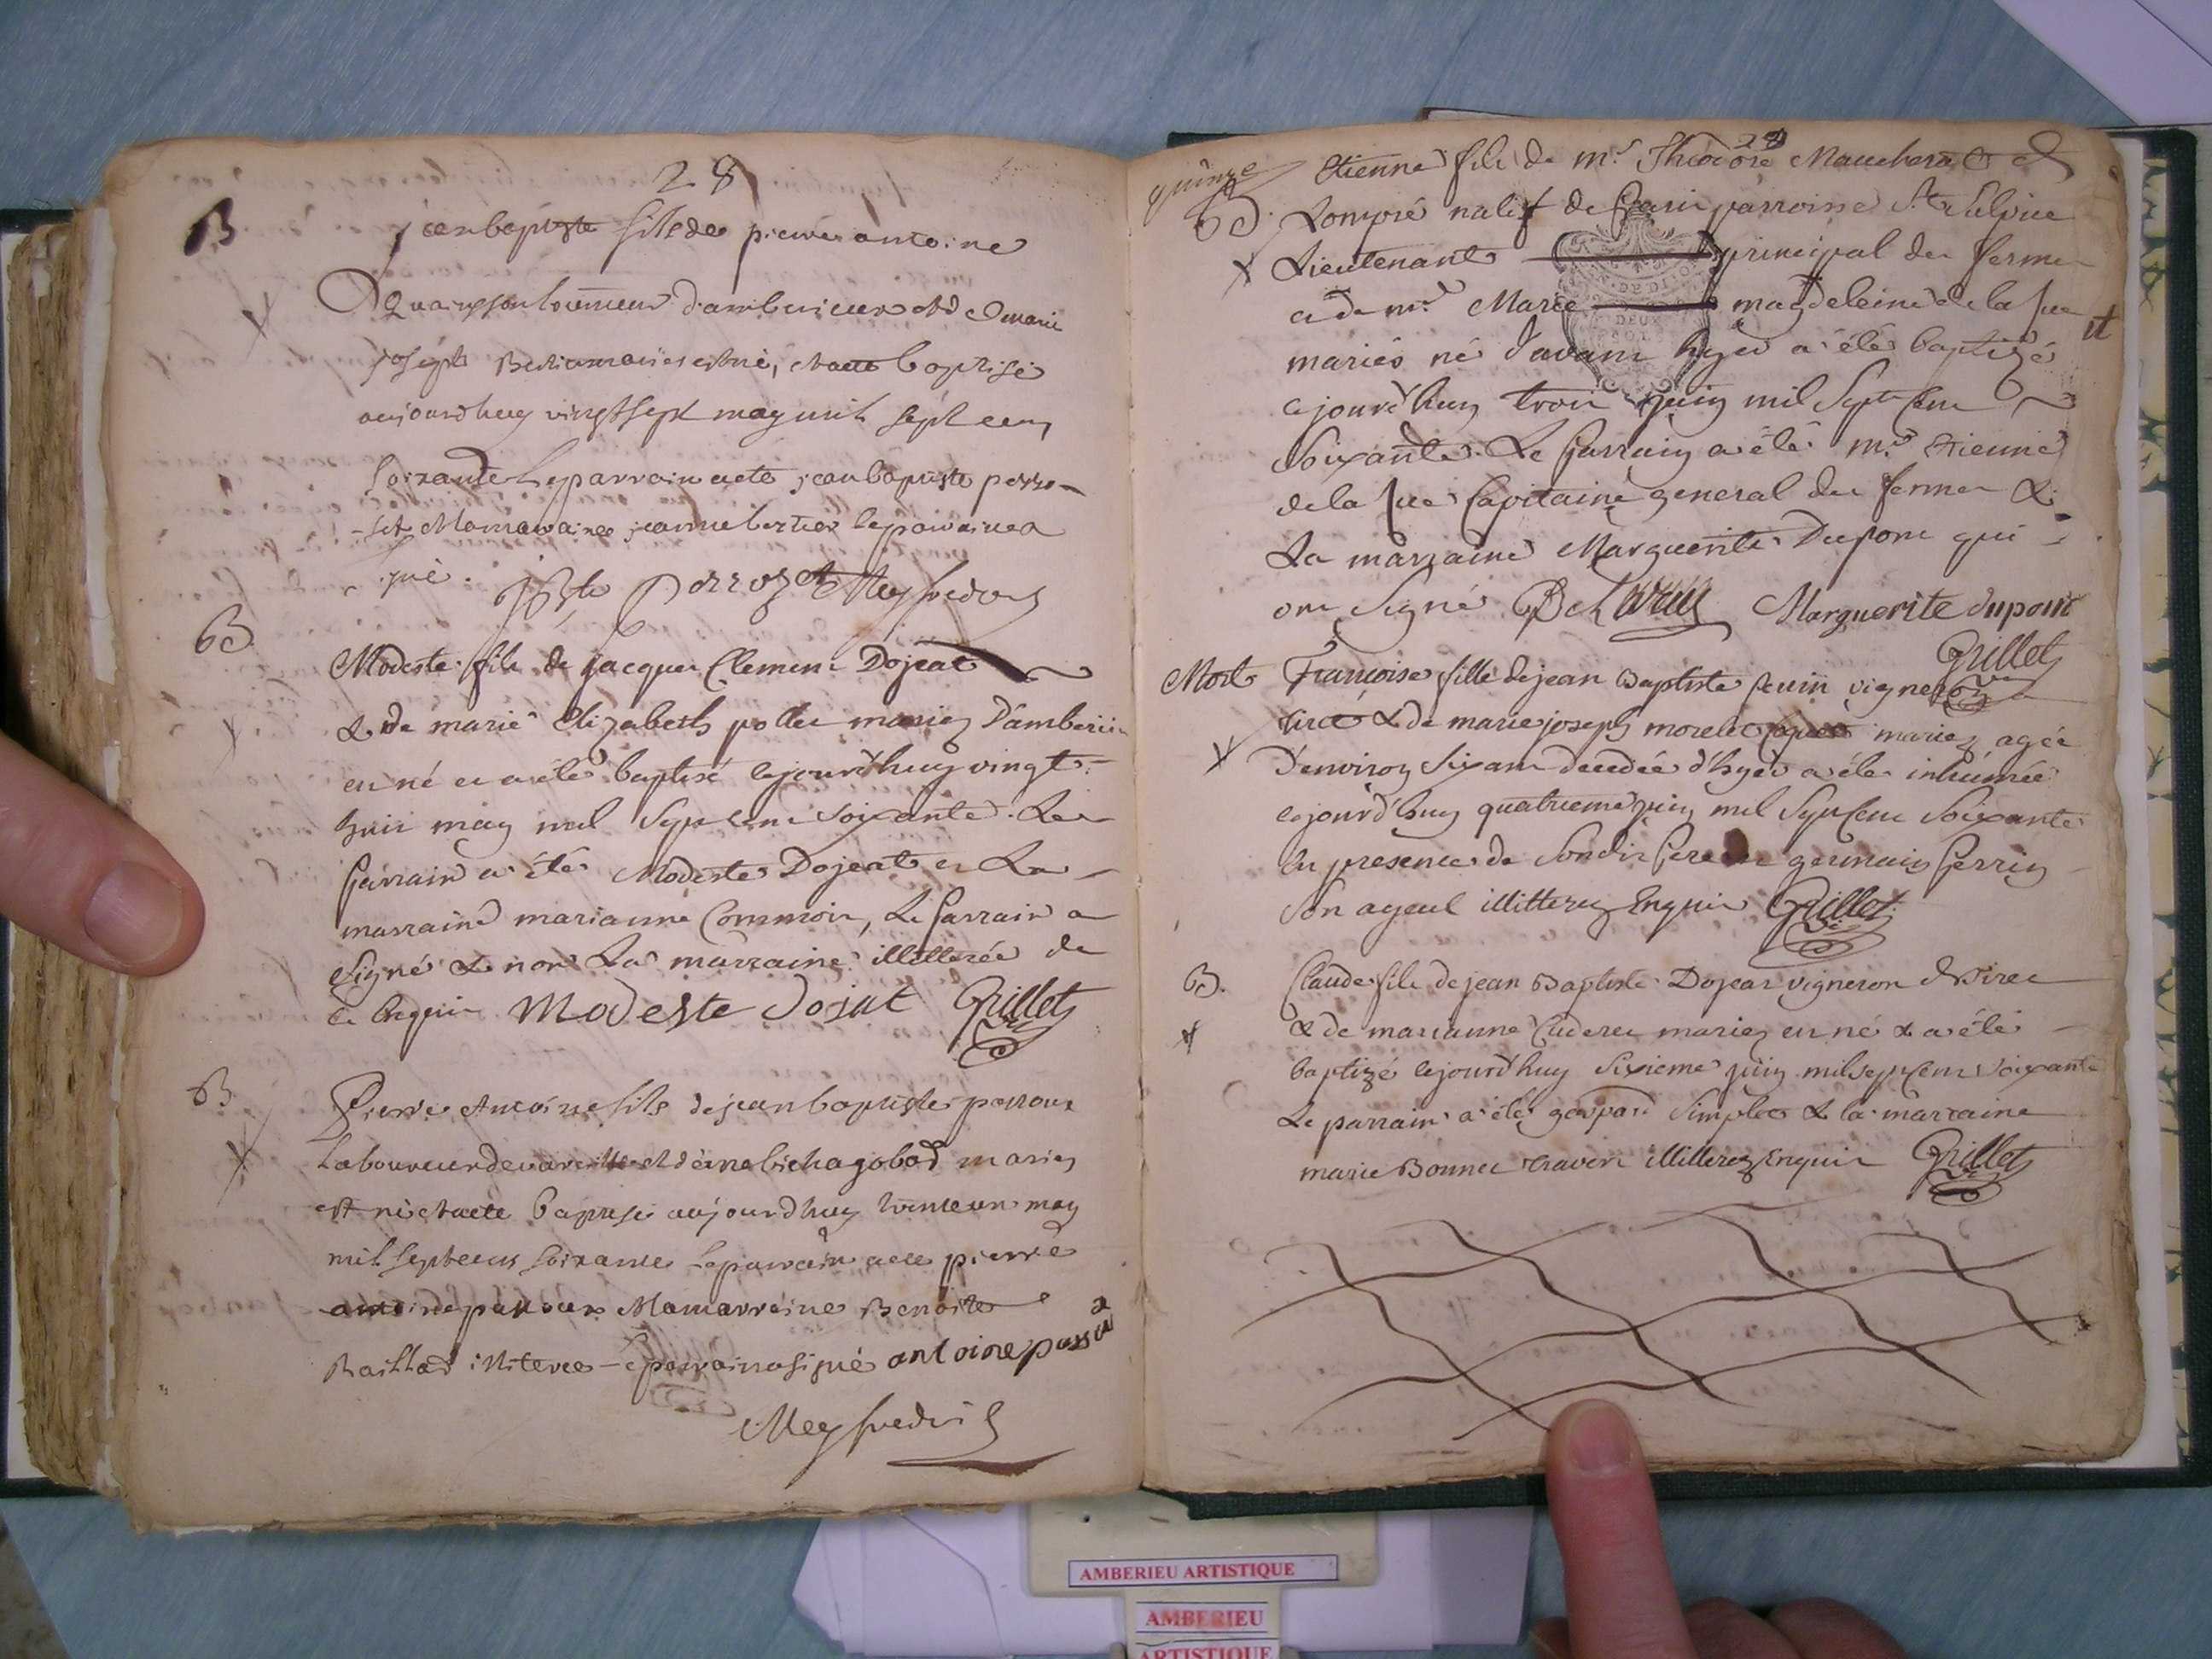 28
B
jean baptiste fils de pierre antoine
d'amberieux et de marie
joseph est né, et a ete baptisé
aujourdhuy vingt sept may mil sept cens
soixante Le parrain a ete jean baptiste perro-
-set Et la marraine jeanne bertier le parrain a
signé. Perrozet Meyfredis
B
Modeste fils de jacque Clement Dojeat
& de marie Elizabeth mariez D'amberieu
est né et a été baptisé cejourd'huy vingt-
huit may mil Sept cent soixante. Le
Parrain a été Modeste Dojeat et La
marraine marianne Commoin, Le Parrain a
Signé & non La marraine illitterée de
ce Enquis Modeste dojat Grillet
B
Pierre Antoine fils de jean baptiste
Laboureur de vareille et de mariez
est né et a ete baptisé aujourdhuy trente un may
mil sept cens soixante Le parrain a ete pierre
antoine Et la marraine Benoite
Baillad illiteree le parrain a signé antoine
Meyfredis
quinze
28
B.
Etienne fils de mr. Theodore
Lompré natif de Paris parroisse St. Sulpice
Lieutenant principal des fermes
et de me. Marie magdeleine de la
mariés né d'avant hyer a été baptizé
cejourd'huy trois juin mil Sept Cent
Soixante. Le Parrain a été mr. Etienne
de la Capitaine general des fermes &
La marraine Marguerite Dupont qui
ont Signé Marguerite dupont
Grillet
Mort
Françoise fille de jean Baptiste perrin vigneron
& de marie joseph morelet mariez agée
D'environ Six ans decedée d'hyer a été inhumée
cejourd'huy quatrieme juin mil Sept Cent Soixante
En presence de Sondit Pere germain Perrin
Son ayeul illitterez Enquis Grillet
B.
Claude fils de jean Baptiste Dojeat vigneron
& de marianne mariez est né & a été
baptizé cejourd'huy Sixieme juin mil sept cent soixante
Le parrain a été gaspard Simplet & la marraine
marie Bonnet illitterez Enquis Grillet
AMBERIEU ARTISTIQUE
AMBERIEU
ARTISTIQUE